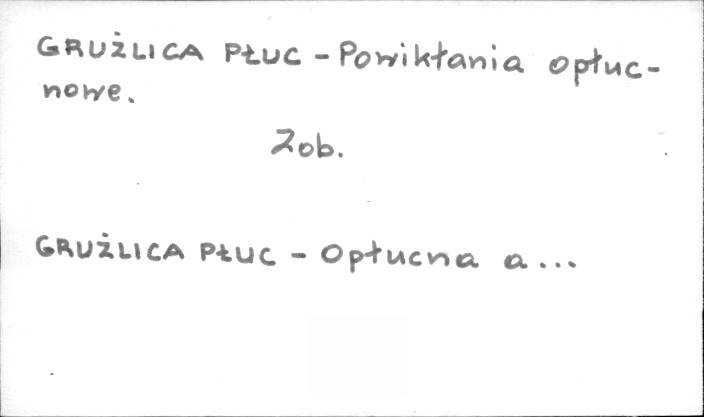 GRUŹLICA PŁUC - Powikłania opłuc-
nowe.
Zob.
GRUŹLICA PŁUC - Opłucna a...